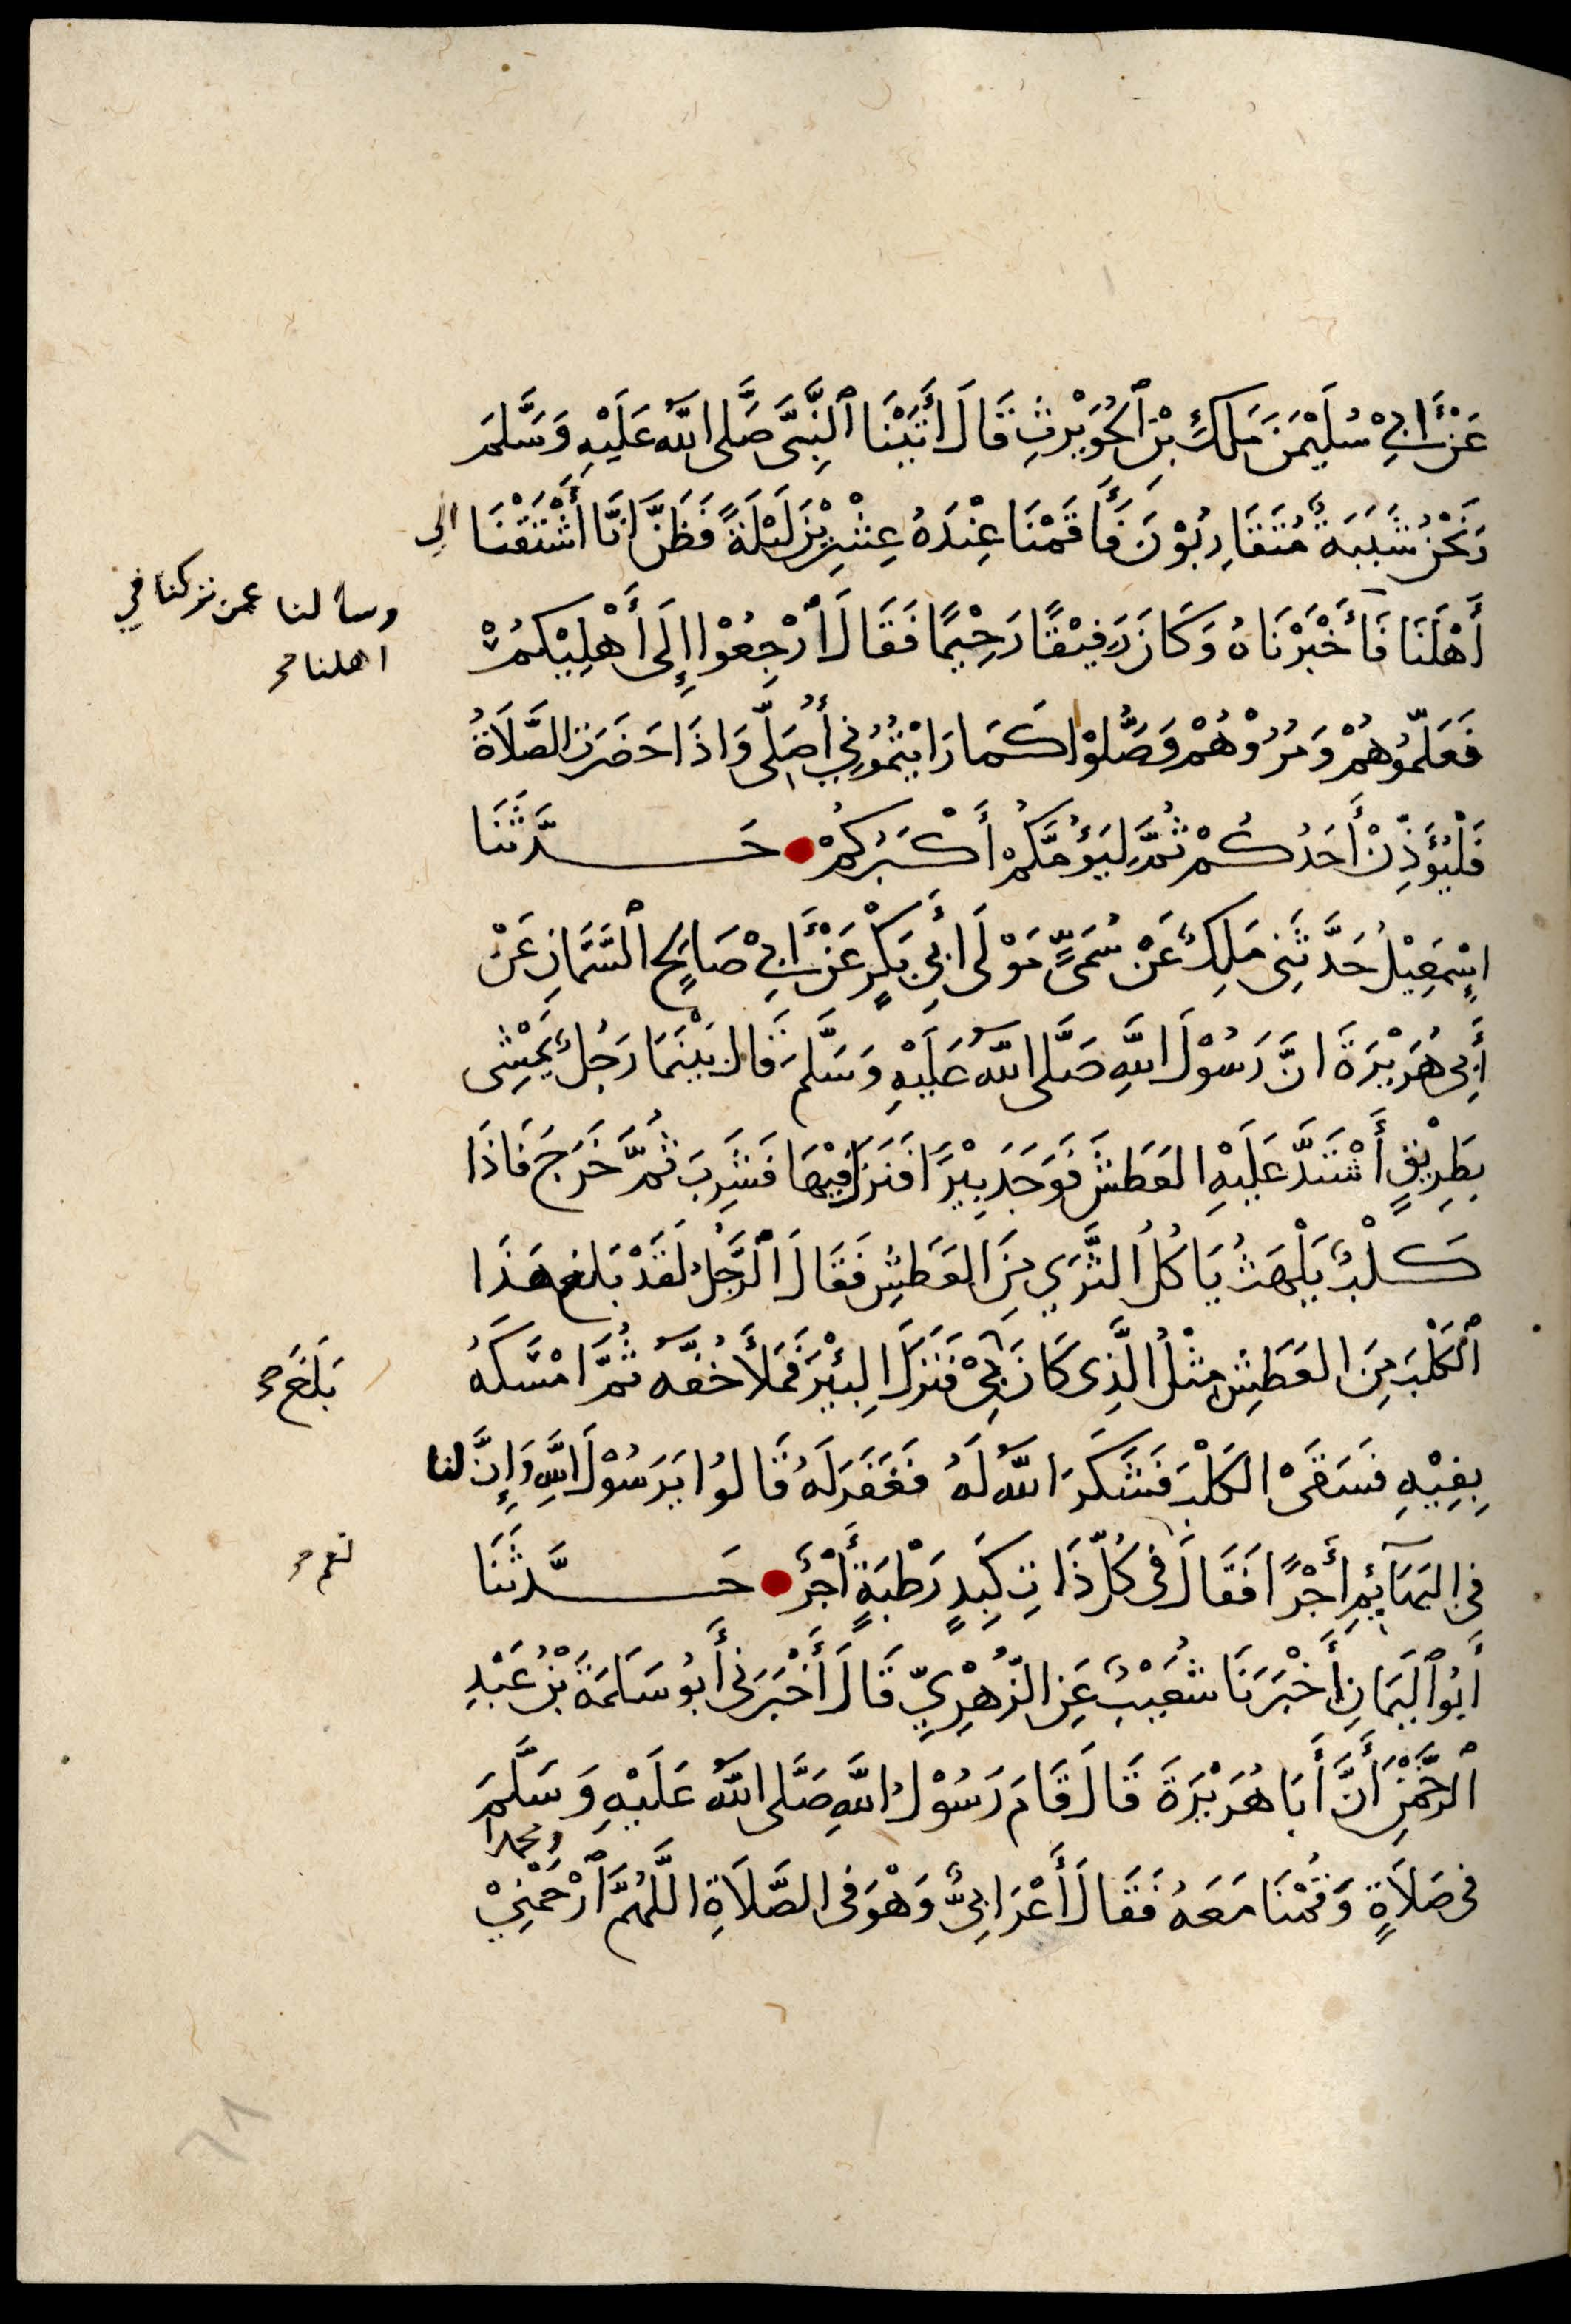 عَنْ أَبِيْ سُلَيْمٰنَ مَلِكِ بْنِ ٱلْحُوَيْرِثِ قَالَ أَتَيْنَا ٱلنَّبِىَّ صَلَّى اللَّهُ عَلَيْهِ وَسَلَّمَ
وَنَحْنُ شَبَبَةٌ مُتَقَارِبُوْنَ فَأَقَمْنَا عِنْدَهُ عِشْرِيْنَ لَيْلَةً فَظَنَّ انَّا أَشْتَقْنَا الى
أَهْلَنَا فَأَخْبَرْنَاهُ وَكَانَ رَفِيْقًا رَحِيْمًا فَقَالَ ٱرْجِعُوْا إِلَى أَهْلِيْكُمْ
وسألنا عمن تركنا في
اهلنا صح
فَعَلِّمُوهُمْ وَمُرُوْهُمْ وَصَلُّوْا كَمَا رَايْتُمُوْنِي أُصَلِّى وَاذَا حَضَرَتِ الصَّلَاةُ
فَلْيُؤَذِّنْ أَحَدُكُمْ ثُمَّ لِيَؤُمَّكُمْ أَكْبَرُكُمْ حَدَّثَنَا
اسْمٰعِيْلُ حَدَّثَنِى مَلِكٌ عَنْ سُمَىٍّ مَوْلَى أَبِي بَكْرٍ عَنْ أَبِيْ صَالِحٍ ٱلسَّمَّانِ عَنْ
أَبِى هُرَيْرَةَ انَّ رَسُوْلَ اللَّهِ صَلَّى اللَّهُ عَلَيْهِ وَسَلَّمَ قَالَ بَيْنَمَا رَجُلٌ يَمْشِى
بِطَرِيْقٍ أَشْتَدَّ عَلَيْهِ العَطَشُ فَوَجَدَ بِيْرًا فَنَزَلَ فِيْهَا فَشَرِبَ ثُمَّ خَرَجَ فَاذَا
كَلْبٌ يَلْهَثُ يَاكُلُ الثَّرَي مِنَ العَطَشِ فَقَالَ ٱلرَّجُلُ لَقَدْ بَلَغَ هَذَا
ٱلْكَلْبَ مِنَ العَطَشِ مِثْلُ الَّذِى كَانَ بِيْ فَنَزَلَ البِيْرَ فَمَلأَ خُفَّهُ ثُمَّ امْسَكَهُ
بَلَغَ صح
بِفِيْهِ فَسَقَىْ الكَلْبَ فَشَكَرَ اللَّهُ لَهُ فَغَفَرَ لَهُ قَالُوا يَرَسُوْلَ اللَّهِ وَإِنَّ لنا
فى البَهَآئِمِ أَجْرًا فَقَالَ فى كُلِّ ذَاتِ كَبِدٍ رَطْبَةٍ أَجْرٌ حَدَّثَنَا
نعم صح
أَبُو ٱلْيَمَانِ أَخْبَرَنَا شُعَيْبٌ عَنِ الزُّهْرِيِّ قَالَ أَخْبَرَنِى أَبُو سَلَمَةَ بْنُ عَبْدِ
ٱلرَّحْمَنِ أَنَّ أَبَا هُرَيْرَةَ قَالَ قَامَ رَسُوْلُ اللَّهِ صَلَّى اللَّهُ عَلَيْهِ وَسَلَّمَ
فى صَلَاةٍ وَقُمْنَا مَعَهُ فَقَالَ أَعْرَابِىٌّ وَهْوَ فى الصَّلَاةِ اللَّهُمَّ ٱرْحَمْنِيْ
ومحمدا
٦٨